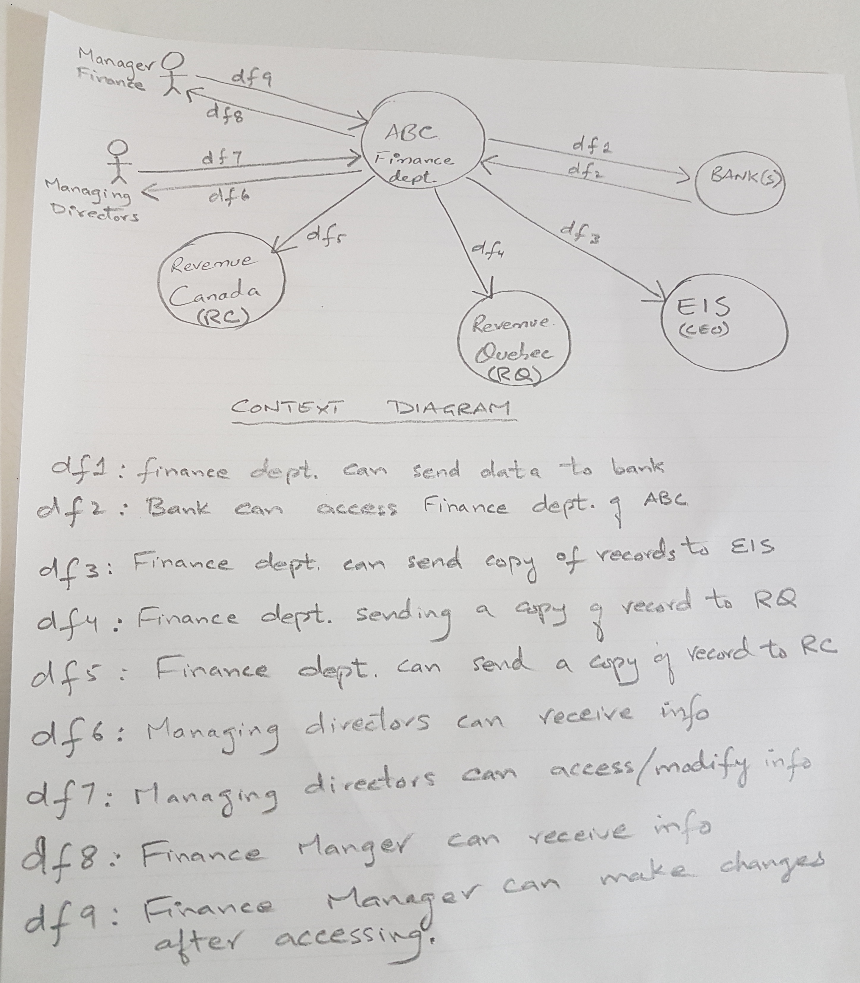 Manager
Finance
df9
df8
ABC
Finance
dept.
df1
df2
BANK(S)
df7
Managing
Directors
df6
df5
df4
df3
Revenue
Canada
(RC)
Revenue
Quebec
(RQ)
EIS
(CEO)
CONTEXT DIAGRAM
df1: finance dept. can send data to bank
df2: Bank can access Finance dept. of ABC
df3: Finance dept. can send copy of records to EIS
df4: Finance dept. sending a copy of record to RQ
df5: Finance dept. can send a copy of record to RC
df6: Managing directors can receive info
df7: Managing directors can access/modify info
df8: Finance Manger can receive info
df9: Finance Manager can make changes
after accessing.